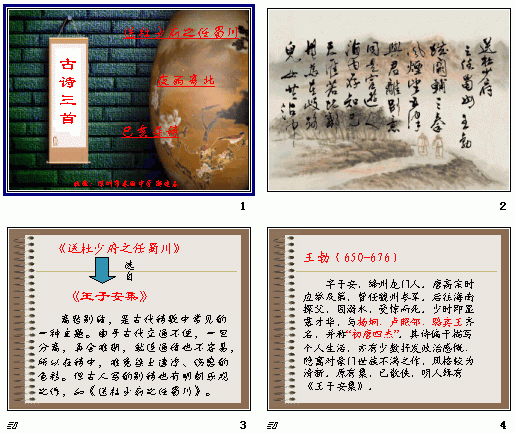 古诗三首
送杜少府之任蜀川
夜雨寄北
己亥杂诗
1
送杜少府
之任蜀州 王勃
城阙辅三秦
风烟望五津
與君離别意
同是宦遊人
海内存知己
天涯若比鄰
無為在岐路
兒女共沾巾
2
《送杜少府之任蜀川》
选自
《王子安集》
离愁别绪，是古代诗歌中常见的
一种主题。由于古代交通不便，一旦
分离，再会难期，就连通信也不容易，
所以在诗中，难免染上凄冷、伤感的
色彩。但古人写的别诗也有明朗乐观
之作，如《送杜少府之任蜀川》。
3
王勃（650-676）
字子安，绛州龙门人，唐高宗时
应举及第，曾任虢州参军，后往海南
探父，因溺水，受惊而死，少时即显
露才华，与杨炯、卢照邻、骆宾王齐
名，并称“初唐四杰”，其诗偏于描写
个人生活，亦有少数抒发政治感慨，
隐寓对豪门世族不满之作，风格较为
清新，原有集，已散佚，明人辑有
《王子安集》。
4